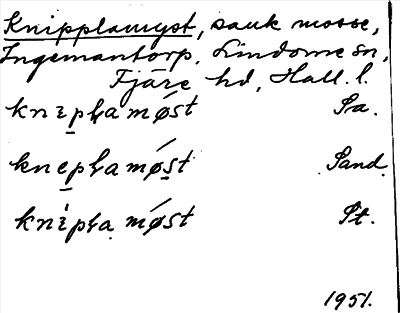 Knipplamyst, sank mosse,
Ingemantorp, Lindome sn,
Fjäre hd, Hall. l.
knɪpɫa mǿst Sa.
knepɫa mǿst Sand.
knípɫa mǿst St.
1951.